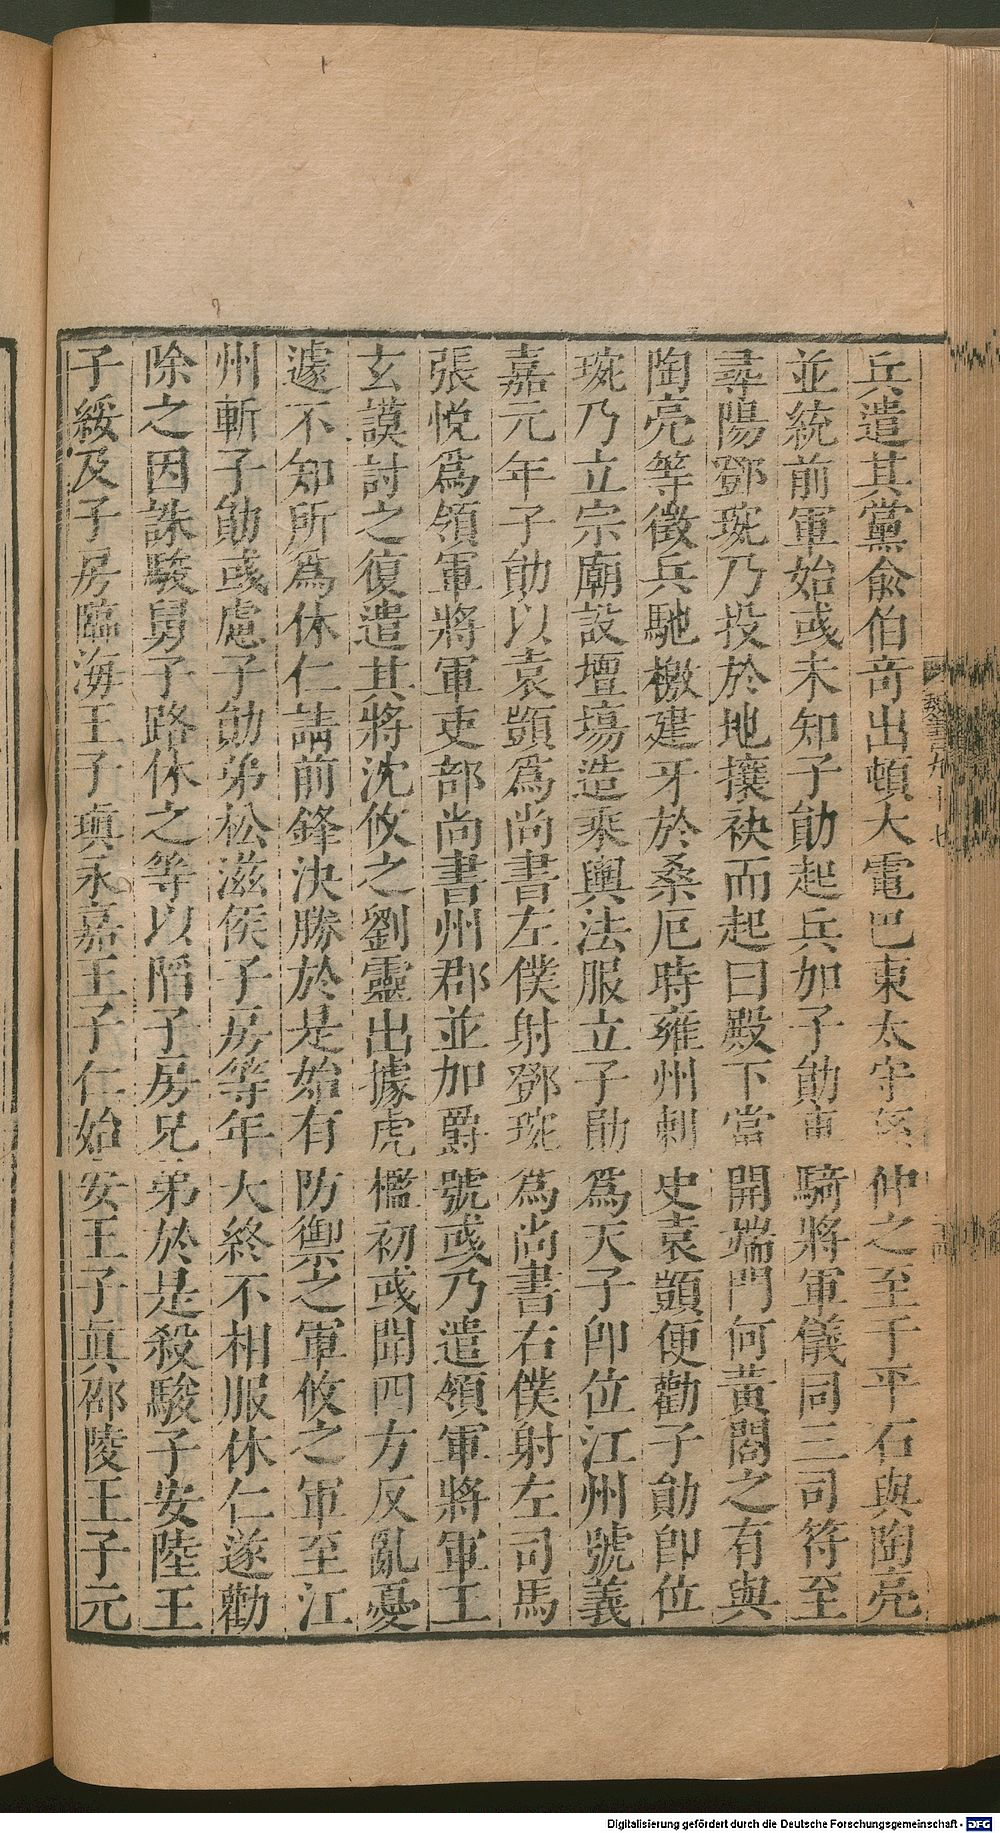 兵遣其黨俞伯竒出頓大雷巴東太守孫仲之至于平石與陶亮
並統前軍始彧未知子勛起兵加子勛車騎將軍儀同三司符至
尋陽鄧琬乃投於地攘袂而起曰殿下當開端門何黃閤之有與
陶亮等徵兵馳檄建牙於桑厄時雍州刺史袁顗便勸子勛卽位
琬乃立宗廟設壇塲造乘輿法服立子勛爲天子卽位江州號義
嘉元年子勛以袁顗爲尚書左僕射鄧琬爲尚書右僕射左司馬
張悅爲領軍將軍吏部尚書州郡並加爵號彧乃遣領軍將軍王
玄謨討之復遣其將沈攸之劉靈出據虎檻初彧聞四方反亂憂
遽不知所爲休仁請前鋒決勝於是始有防禦之軍攸之軍至江
州斬子勛彧慮子勛弟松滋侯子房等年大終不相服休仁遂勸
除之因誅駿舅子路休之等以陷子房兄弟於是殺駿子安陸王
子綏及子房臨海王子瑱永嘉王子仁始安王子眞邵陵王子元
Digitalisierung gefördert durch die Deutsche Forschungsgemeinschaft - DFG